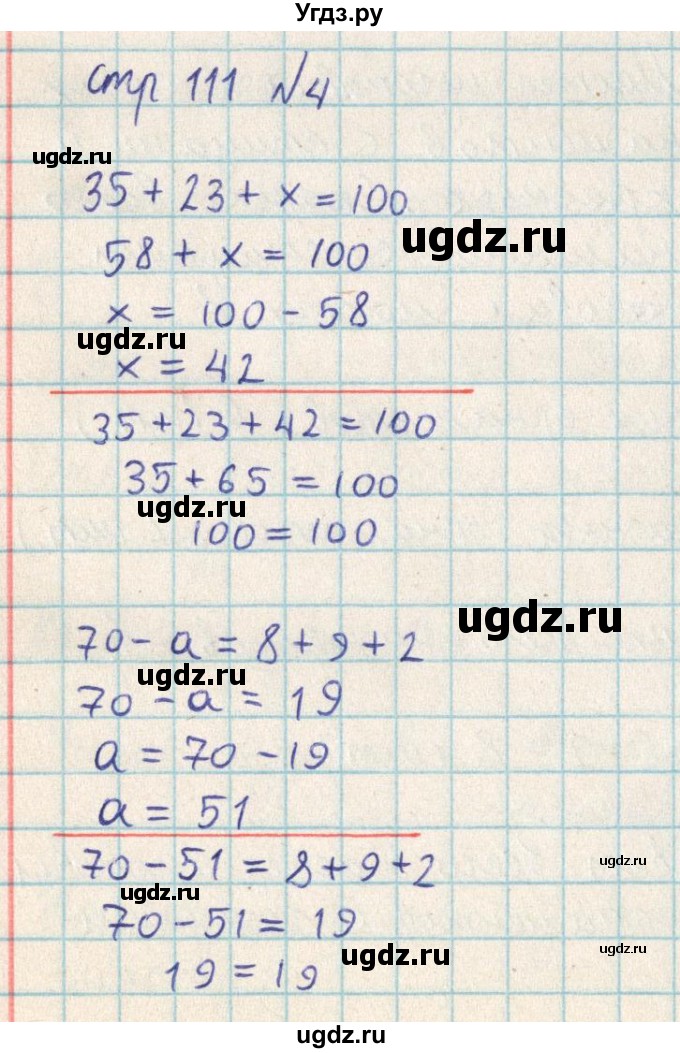 Угдз.ру
стр 111 №4
ugdz.ru
35 + 23 + x = 100
ugdz.ru
58 + x = 100
x = 100 - 58
ugdz.ru
x = 42
35 + 23 + 42 = 100
35 + 65 = 100
ugdz.ru
100 = 100
ugdz.ru
70 - a = 8 + 9 + 2
ugdz.ru
70 - a = 19
a = 70 - 19
a = 51
70 - 51 = 8 + 9 + 2
ugdz.ru
ugdz.ru
70 - 51 = 19
ugdz.ru
ugdz.ru
19 = 19
ugdz.ru